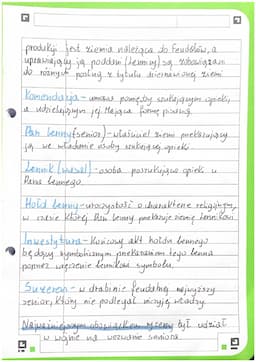 produkcji jest ziemia należąca do feudałów, a
uprawiający ją poddani (lenny) są zobowiązani
do różnych posług z tytułu dzierżawionej ziemi
Komendacja - umowa pomiędzy szukającym opieki,
a udzielającym jej. Mająca formę pisemną.
Pan lenny (senior) - właściciel ziemi przekazujący
ją we władanie osoby szukającej opieki
Lennik (wasal) - osoba poszukująca opieki u
Pana lennego.
Hołd lenny - uroczystość o charakterze religijnym,
w czasie której Pan lenny przekazuje ziemię lennikowi
Inwestytura - Końcowy akt hołdu lennego
będący symbolicznym przekazaniem tego lenna
poprzez wręczenie lennikowi symbolu.
Suweren - w drabinie feudalnej najwyższy
senior, który nie podlegał niczyjej władzy.
Najważniejszym obowiązkiem był udział
w wojnie na wezwanie seniora